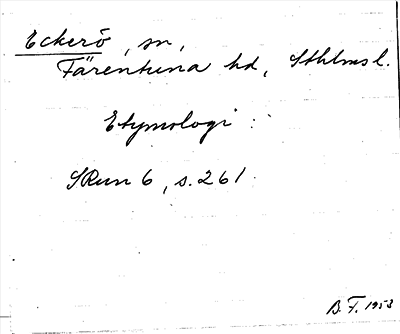 Eckerö, sn,
Färentuna hd, Sthlms l.
Etymologi:
SRun 6, s. 261.
B. F. 1953